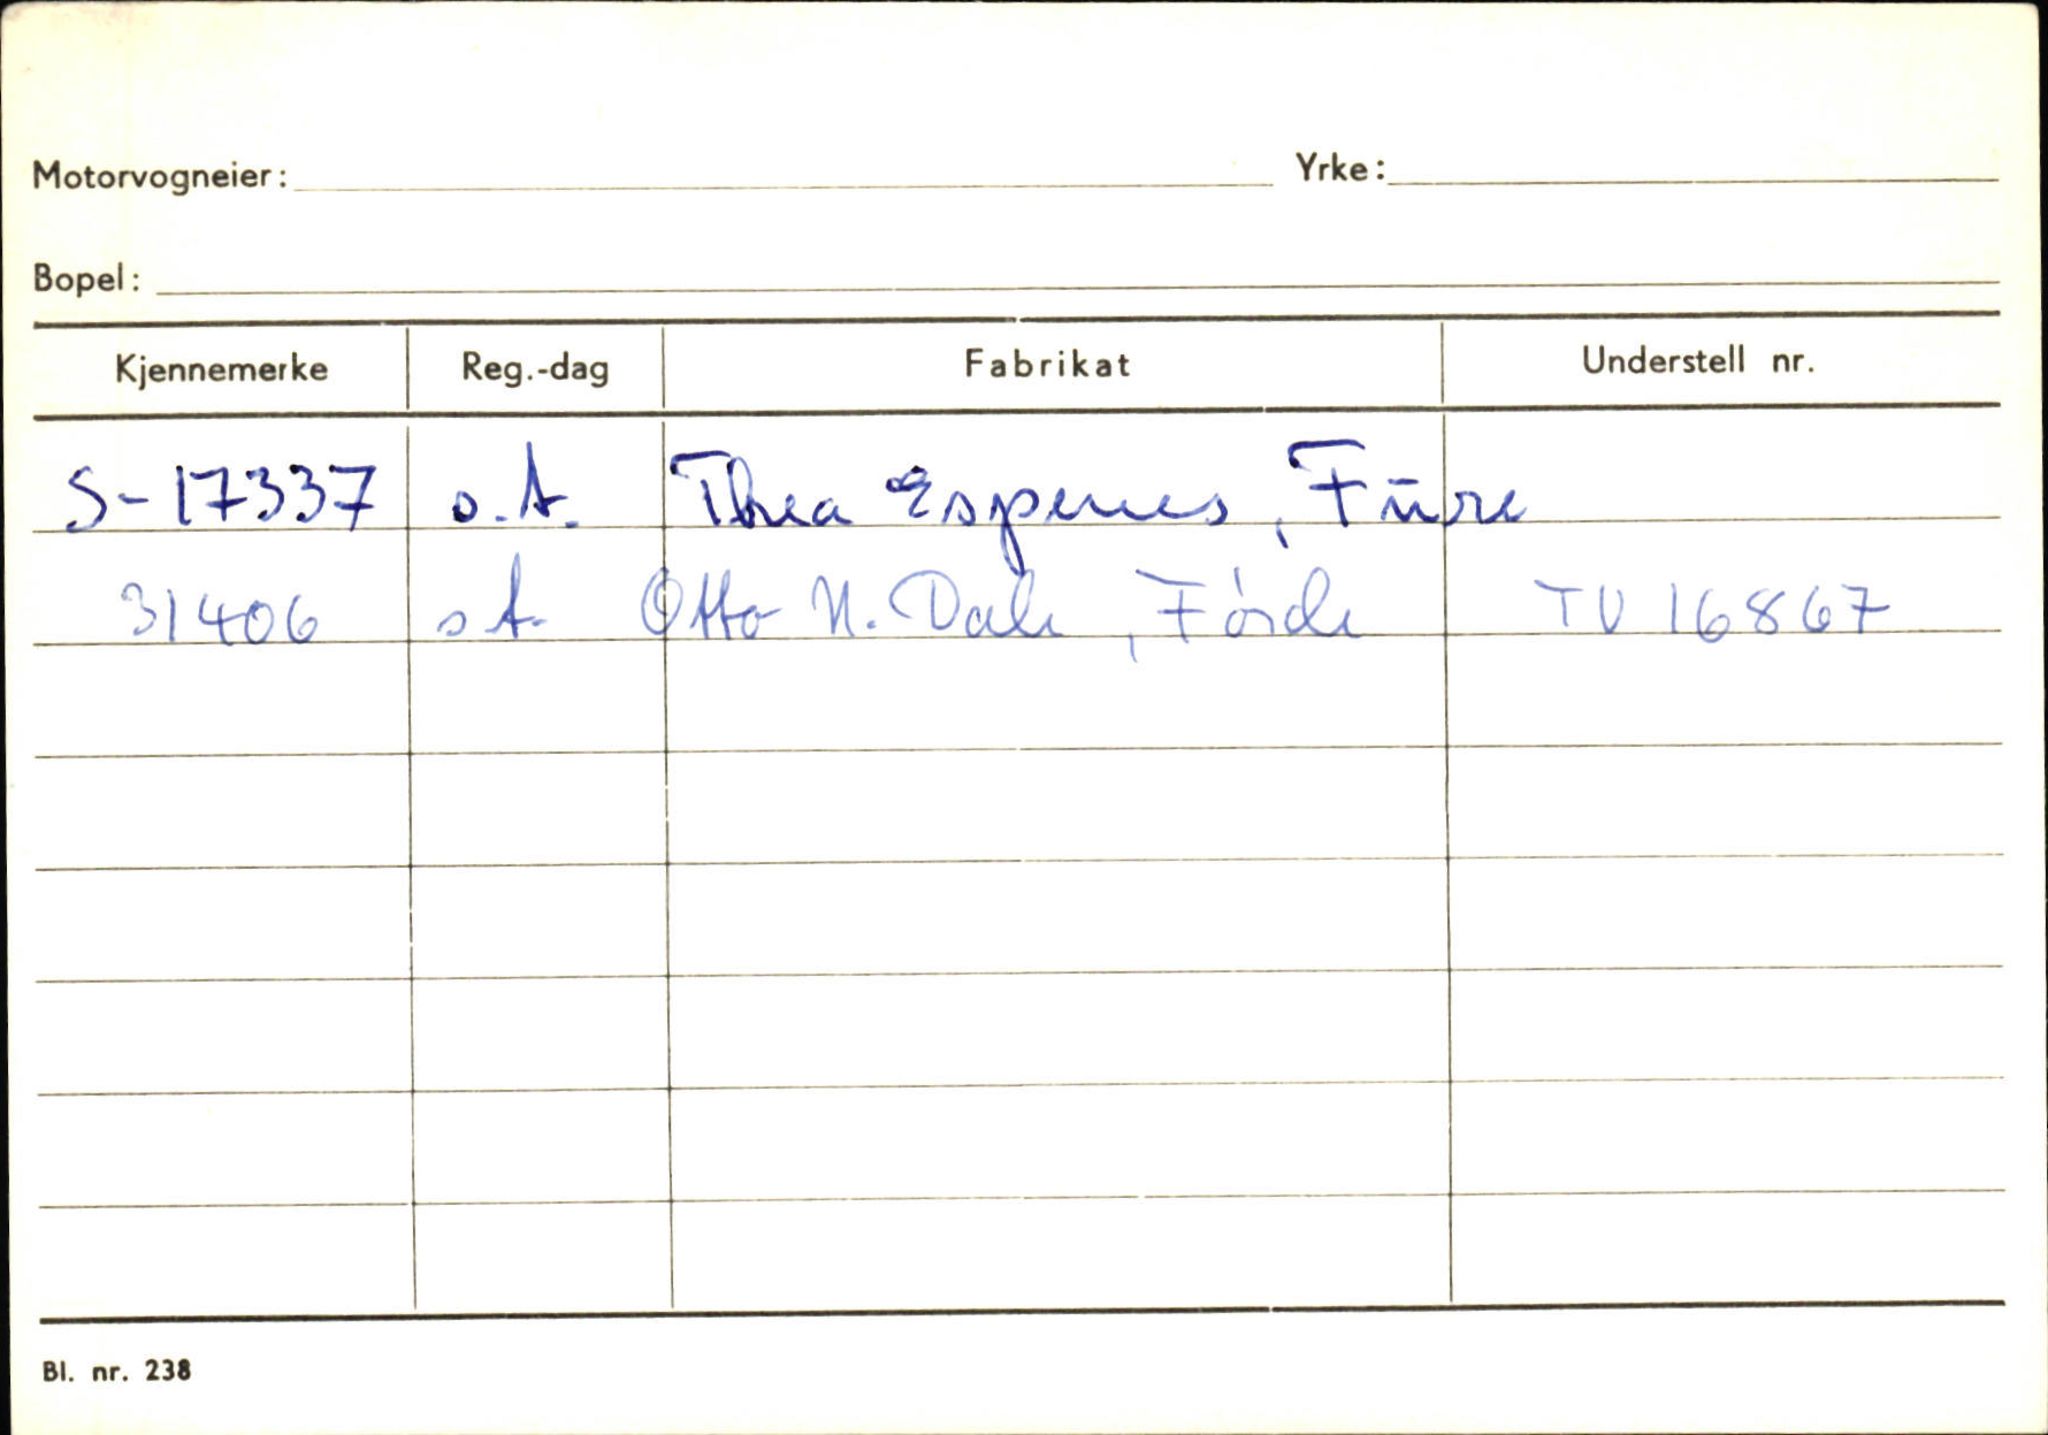 Motorvogneier: Yrke:
Bopel:
Kjennemerke Reg.-dag Fabrikat Understell nr.
S-17337 s.A. Thea Espenes, Fūre
31406 s.A. Otto N. Dale, Förde TV 16867
Bl. nr. 238